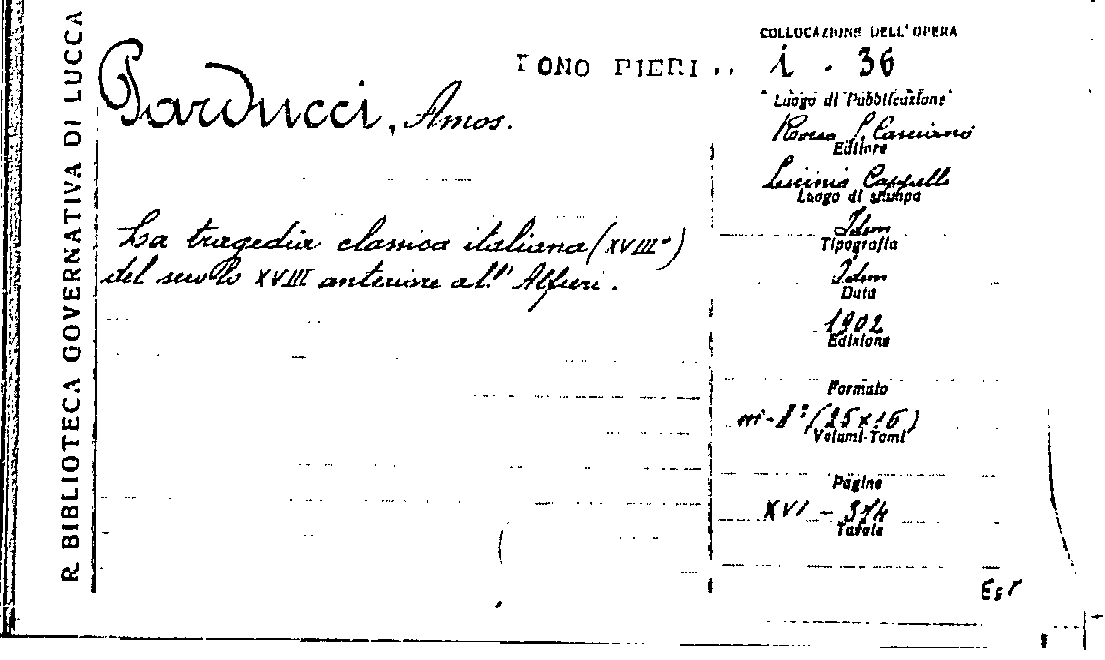 R. BIBLIOTECA GOVERNATIVA DI LUCCA
COLLOCAZIONE DELL'OPERA
DONO PIERI .. i . 36
Parducci, Amos.
Luogo di Pubblicazione
Rocca S. Casciano
Editore
Licinio Cappelli
Luogo di stampa
Idem
Tipografia
Idem
Data
1902
Edizione
Formato
in-8° (25x16)
Volumi-Tomi
Pagine
XVI - 374
Tavole
La tragedia classica italiana (XVIII°)
del secolo XVIII anteriore all' Alfieri.
Est